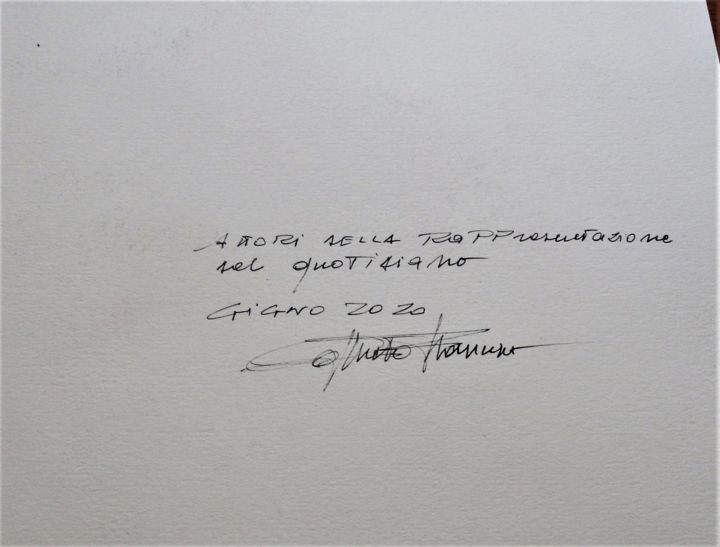 ATTORI DELLA RAPPresentazione
del quotidiano
GIUGNO 2020